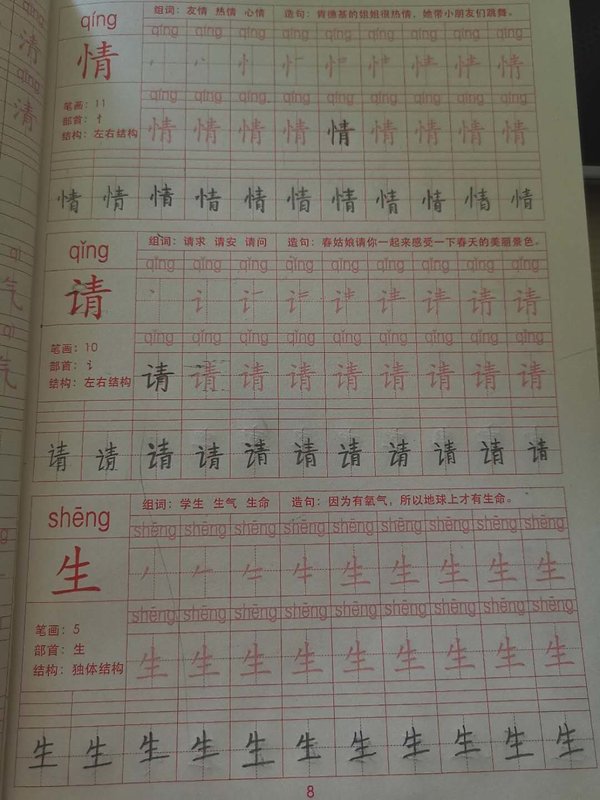 qíng 组词：友情 热情 心情 造句：肯德基的姐姐很热情，她带小朋友们跳舞。
qíng qíng qíng qíng qíng qíng qíng qíng qíng
情
qíng qíng qíng qíng qíng qíng qíng qíng qíng
笔画：11
部首：忄
结构：左右结构
情 情 情 情 情 情 情 情 情
情 情 情 情 情 情 情 情 情 情 情
qǐng 组词：请求 请安 请问 造句：春姑娘请你一起来感受一下春天的美丽景色。
qǐng qǐng qǐng qǐng qǐng qǐng qǐng qǐng qǐng
请
qǐng qǐng qǐng qǐng qǐng qǐng qǐng qǐng qǐng
笔画：10
部首：讠
结构：左右结构
请 请 请 请 请 请 请 请 请
请 请 请 请 请 请 请 请 请 请 请
shēng 组词：学生 生气 生命 造句：因为有氧气，所以地球上才有生命。
shēng shēng shēng shēng shēng shēng shēng shēng shēng
生
shēng shēng shēng shēng shēng shēng shēng shēng shēng
笔画：5
部首：生
结构：独体结构
生 生 生 生 生 生 生 生 生
生 生 生 生 生 生 生 生 生 生 生
8